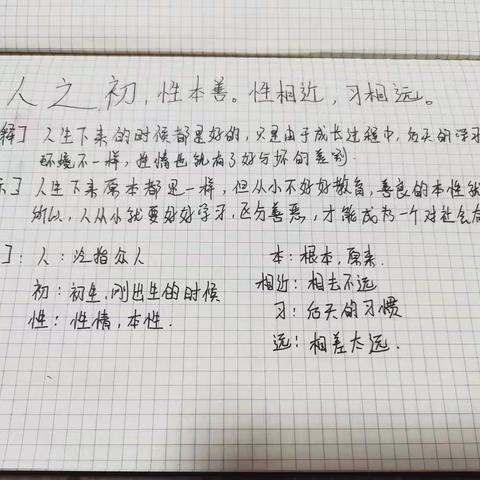 人之初，性本善。性相近，习相远。
释］人生下来的时候都是好的，只是由于成长过程中，后天的学习
环境不一样，性情也就有了好与坏的差别.
示］人生下来原本都是一样，但从小不好好教育，善良的本性就
所以，人从小就要好好学习，区分善恶，才能成为一个对社会有
］：人：泛指众人 本：根本，原来.
初：初生，刚出生的时候 相近：相去不远
性：性情，本性. 习：后天的习惯
远：相差太远.